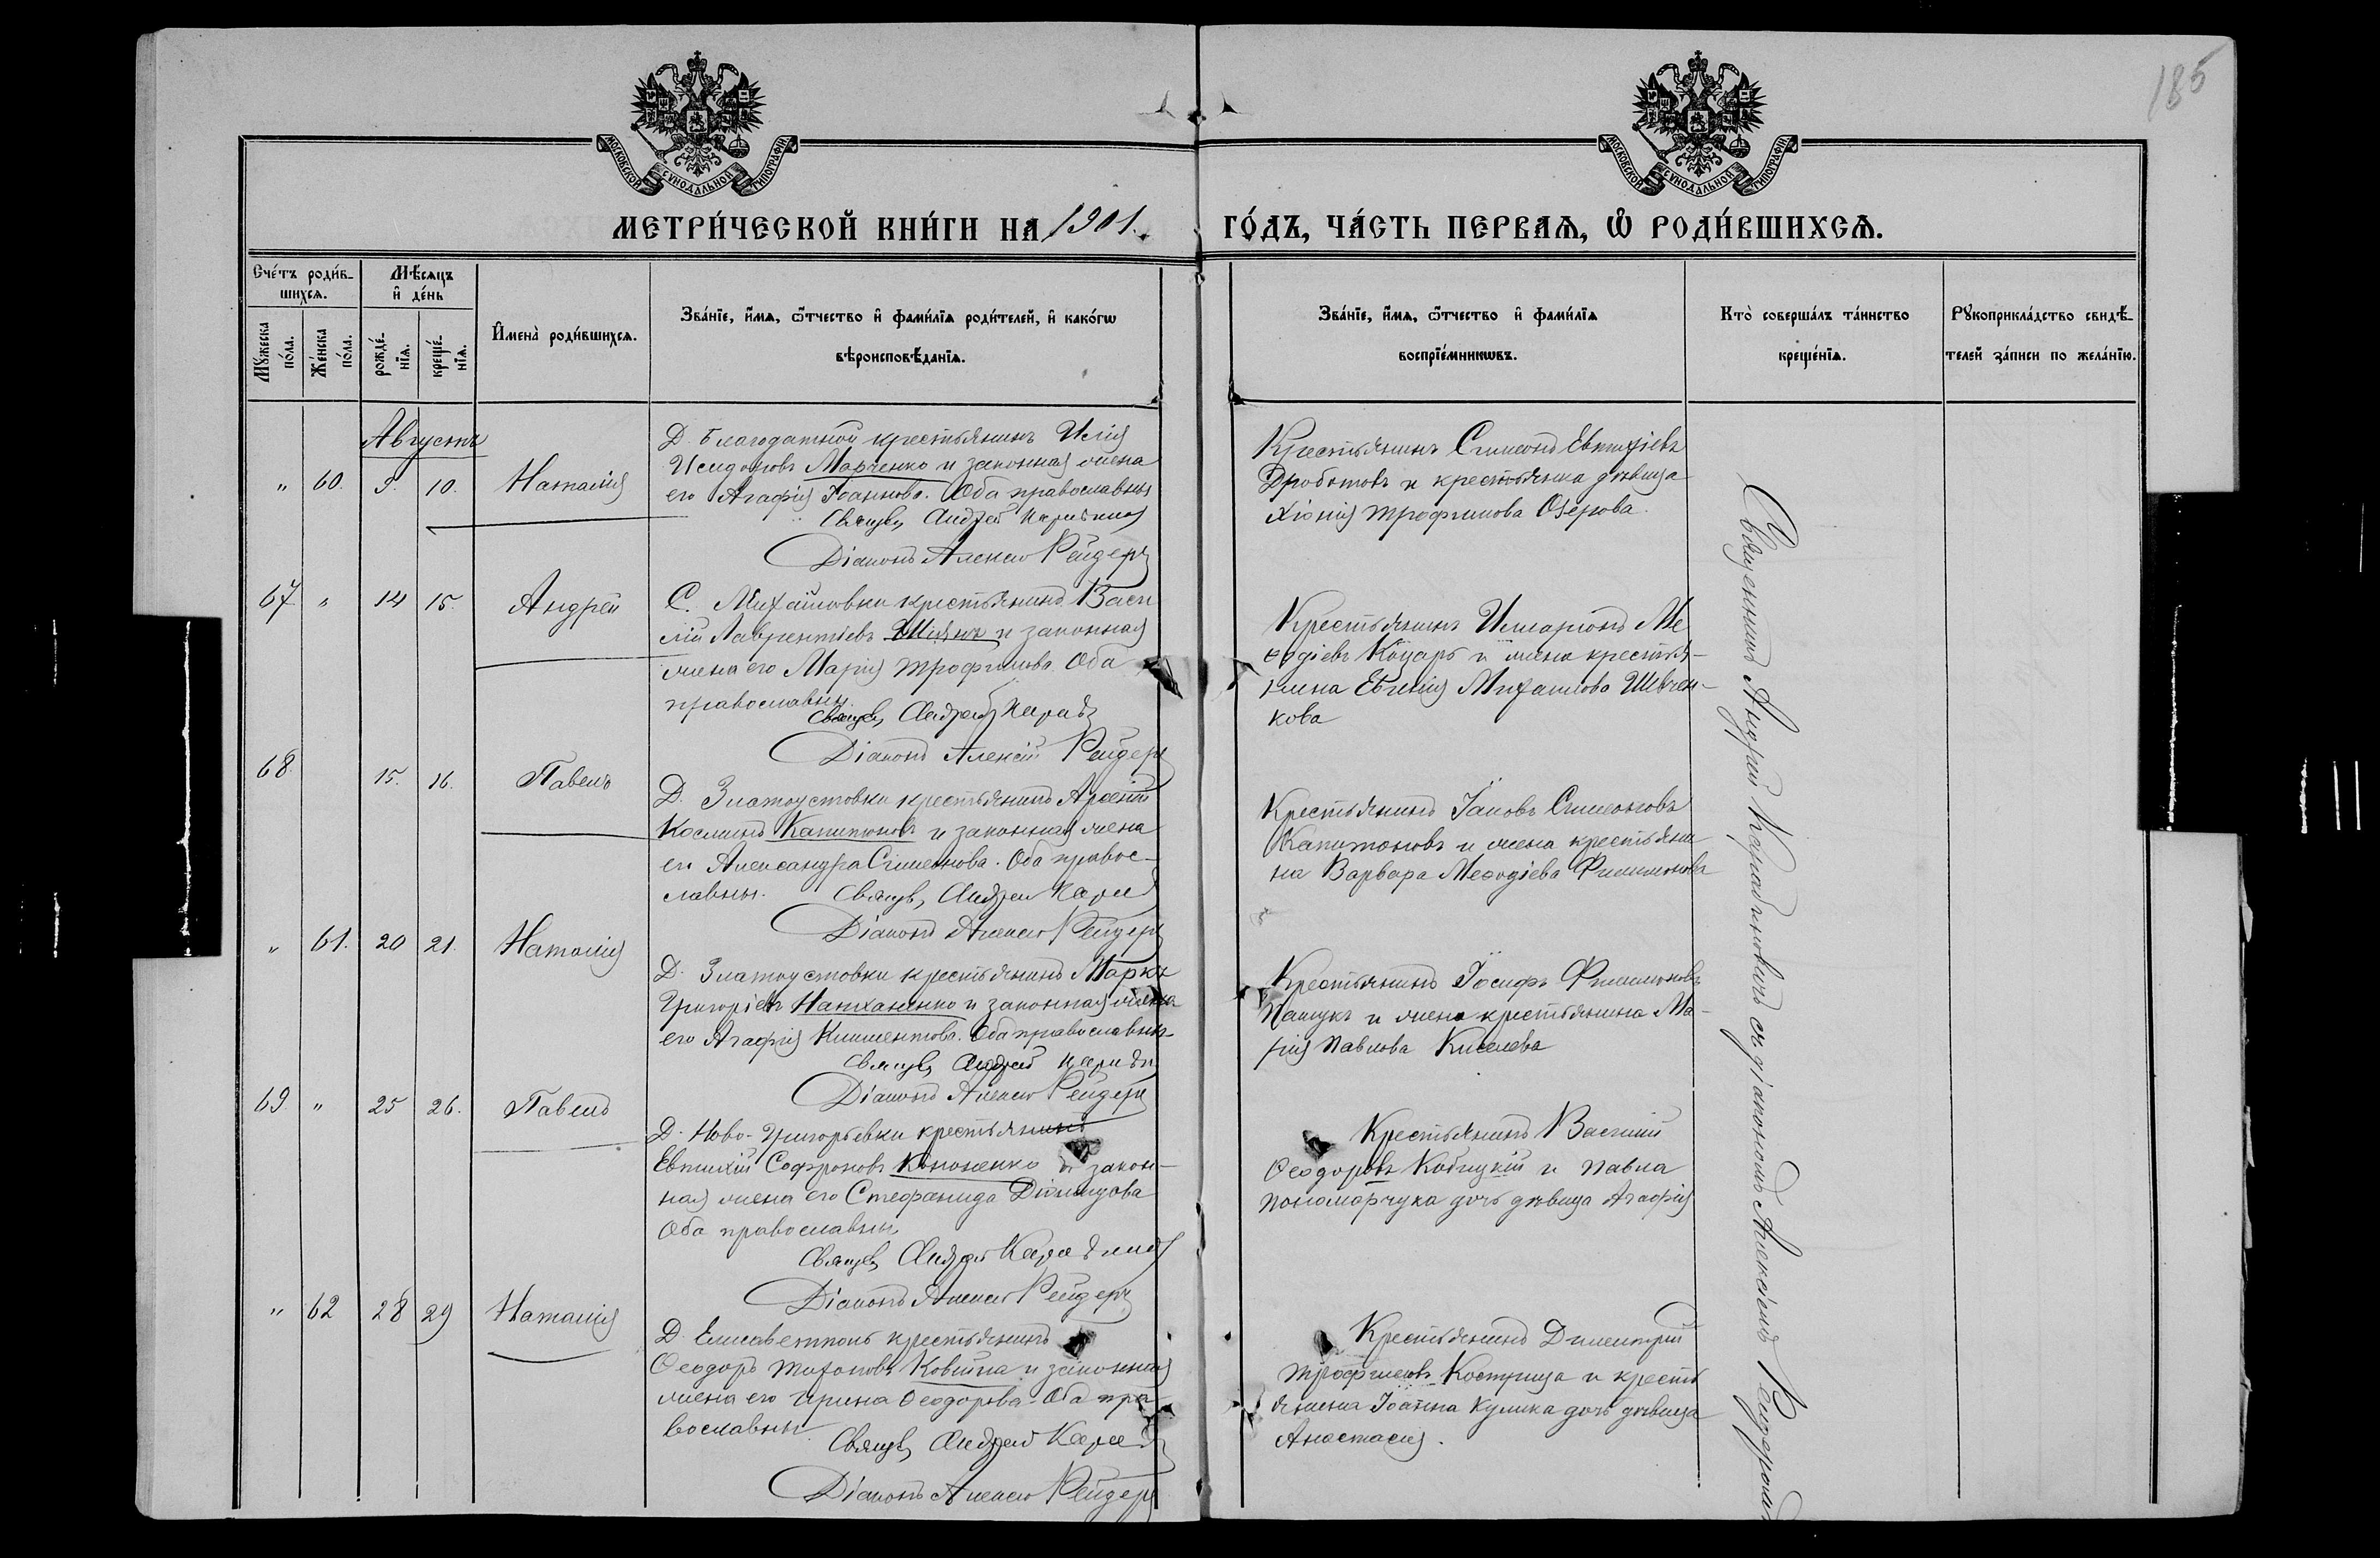 185
МОСКОВСКОЙ СУНОДАЛЬНОЙ ТИПОГРАФІИ
МОСКОВСКОЙ СУНОДАЛЬНОЙ ТИПОГРАФІИ
МЕТРИ́ЧЕСКОЙ КНИ́ГИ НА 1901.
ГО́ДЪ, ЧА́СТЬ ПЕРВАЯ, Ѡ РОДИ́ВШИХСЯ.
Сче́тъ роди́в-
шихся.
Мѣсяцъ
и де́нь
Мꙋ́жеска по́ла.
Же́нска по́ла.
рожде́-
нїя.
креще́-
нїя.
Имена̀ роди́вшихся.
Зва́нїе, и́мя, ѻ҆́тчество и фами́лїя роди́телей, и како́гѡ
вѣроисповѣ́данїя.
Зва́нїе, и́мя, ѻ҆́тчество и фами́лїя
воспрїе́мникѡвъ.
Кто̀ соверша́лъ та́инство
креще́нїя.
Рꙋкоприкла́дство свидѣ́-
телей за́писи по жела́нїю.
Августъ
" 60. 9. 10. Наталія
Д. Благодатной крестьянинъ Илія
Исидоровъ Марченко и законная жена
его Агафія Іоаннова. Оба православны
Священ. Андрей
Діаконъ Алексій Рейдеръ
Крестьянинъ Симеонъ Евтихіевъ
Дроботовъ и крестьянка дѣвица
Хіонія Трофимова Озерова.
67 " 14 15. Андрей
С. Михайловки крестьянинъ Васи
лій Лаврентіевъ и законная
жена его Марія Трофимова. Оба
православны.
Священ. Андрей
Діаконъ Алексій Рейдеръ
Крестьянинъ Иларіонъ Ме
ѳодіевъ Коцарь и жена крестья-
нина Евгенія Михаилова Шевчен-
кова
68. 15. 16. Павелъ
Д. Златоустовки крестьянинъ Арсеній
Косминъ Капитоновъ и законная жена
его Александра Симеонова. Оба правос-
лавны. Священ. Андрей
Діаконъ Алексій Рейдеръ
Крестьянинъ Іаковъ Симеоновъ
Капитоновъ и жена крестьяни
на Варвара Меѳодіева Филимонова
" 61. 20 21. Наталія
Д. Златоустовки крестьянинъ Маркъ
Григоріевъ и законная жена
его Агафія Климентова. Оба православны.
Священ. Андрей
Діаконъ Алексій Рейдеръ
Крестьянинъ Іосифъ Филимоновъ
Пащукъ и жена крестьянина Ма-
рія Павлова Киселева
69. " 25 26. Павелъ
Д. Ново-Григорьевки крестьянинъ
Евтихій Софроновъ Кононенко и закон-
ная жена его Стефанида Діомидова
Оба православны
Священ. Андрей
Діаконъ Алексій Рейдеръ
Крестьянинъ Василій
Ѳеодоровъ Кобицкій и Павла
Пономарчука дочь дѣвица Агафія
" 62 28 29 Наталія
Д. Елисаветполь крестьянинъ
Ѳеодоръ Тихоновъ и законная
жена его Ирина Ѳеодорова. Оба пра-
вославны.
Священ. Андрей
Діаконъ Алексій Рейдеръ
Крестьянинъ Димитрій
Трофимовъ Кострица и кресть
янина Іоанна Кулика дочь дѣвица
Анастасія.
Священникъ Андрей съ діакономъ Алексіемъ Рейдеромъ